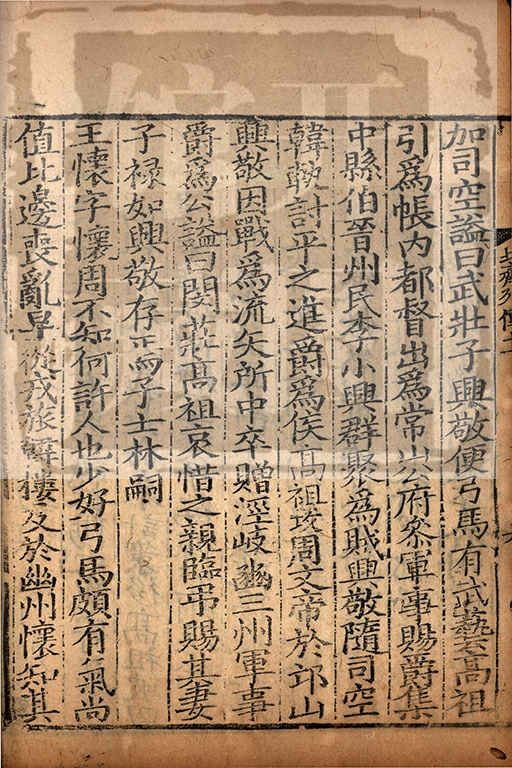 加司空謚曰武壯子興敬便弓馬有武藝高祖
引爲帳内都督出爲常山公府叅軍事賜爵集
中縣伯晉州民李小興群聚爲賊興敬隨司空
韓軌討平之進爵爲侯高祖攻周文帝於邙山
興敬因戰爲流矢所中卒贈涇岐豳三州軍事
爵爲公謚曰閔莊高祖哀惜之親臨弔賜其妻
子禄如興敬存焉子士林嗣
王懷字懷周不知何許人也少好弓馬頗有氣尚
值北邊喪亂早從戎旅韓樓反於幽州懷知其